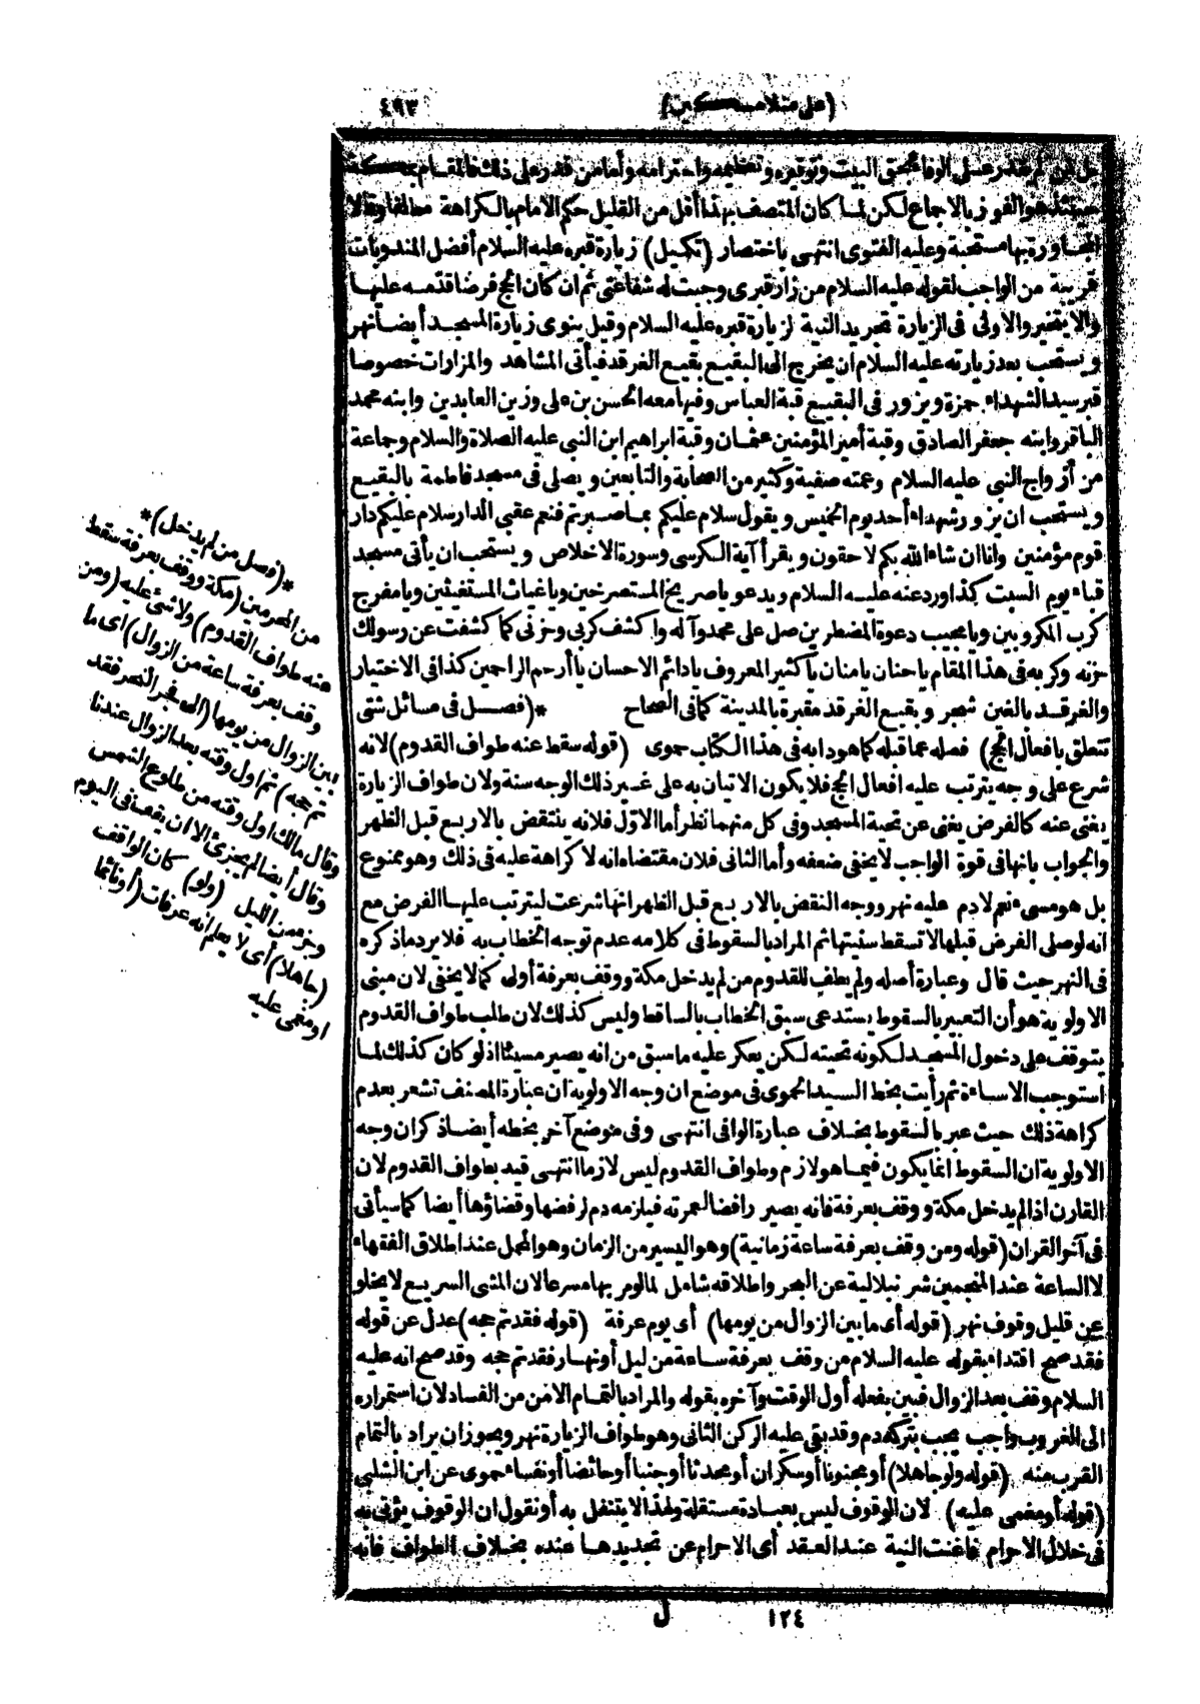 (على منلا مسكين)
٤٩٣
بالوفاء بحق البيت وتوقيره وتعظيمه واحترامه وأما من قدر على ذلك فالمقام بمكة
حينئذ هو الفوز بالاجماع لكن لما كان المتصف بهذا أقل من القليل حكم الامام بالكراهة مطلقا وقالا
المجاورة بها مستحبة وعليه الفتوى انتهى باختصار (تكميل) زيارة قبره عليه السلام أفضل المندوبات
قريبة من الواجب لقوله عليه السلام من زار قبرى وجبت له شفاعتى ثم ان كان الحج فرضا قدمه عليها
والا يتخير والاولى فى الزيارة تجريد النية لزيارة قبره عليه السلام وقيل ينوى زيارة المسجد أيضا نهر
ويستحب بعد زيارته عليه السلام ان يخرج الى البقيع بقيع الغرقد فيأتى المشاهد والمزارات خصوصا
قبر سيد الشهداء حمزة ويزور فى البقيع قبة العباس وفيها معه الحسن بن على وزين العابدين وابنه محمد
الباقر وابنه جعفر الصادق وقبة أمير المؤمنين عثمان وقبة ابراهيم ابن النبى عليه الصلاة والسلام وجماعة
من أزواج النبى عليه السلام وعمته صفية وكثير من الصحابة والتابعين ويصلى فى مسجد فاطمة بالبقيع
ويستحب ان يزور شهداء أحد يوم الخميس ويقول سلام عليكم بما صبرتم فنعم عقبى الدار سلام عليكم دار
قوم مؤمنين وانا ان شاء الله بكم لاحقون ويقرأ آية الكرسى وسورة الاخلاص ويستحب ان يأتى مسجد
قباء يوم السبت كذا ورد عنه عليه السلام ويدعو يا صريخ المستصرخين ويا غياث المستغيثين ويا مفرج
كرب المكروبين ويا مجيب دعوة المضطرين صل على محمد وآله واكشف كربى وحزنى كما كشفت عن رسولك
حزنه وكربه فى هذا المقام يا حنان يا منان يا كثير المعروف يا دائم الاحسان يا أرحم الراحمين كذا فى الاختيار
والغرقد بالغين شجر وبقيع الغرقد مقبرة بالمدينة كما فى الصحاح *(فصل فى مسائل شتى
تتعلق بافعال الحج) فصله عما قبله كما هو دابه فى هذا الكتاب حموى (قوله سقط عنه طواف القدوم) لانه
شرع على وجه يترتب عليه افعال الحج فلا يكون الاتيان به على غير ذلك الوجه سنة ولان طواف الزيارة
يغنى عنه كالفرض يغنى عن تحية المسجد وفى كل منهما نظر أما الاول فلانه ينتقض بالاربع قبل الظهر
والجواب بانها فى قوة الواجب لا يخفى ضعفه وأما الثانى فلان مقتضاه انه لا كراهة عليه فى ذلك وهو ممنوع
بل هو مسىء نعم لا دم عليه نهر ووجه النقض بالاربع قبل الظهر انها شرعت ليترتب عليها الفرض مع
انه لو صلى الفرض قبلها لا تسقط سنيتها ثم المراد بالسقوط فى كلامه عدم توجه الخطاب به فلا يرد ما ذكره
فى النهر حيث قال وعبارة أصله ولم يطف للقدوم من لم يدخل مكة ووقف بعرفة أولى كما لا يخفى لان مبنى
الاولوية هو أن التعبير بالسقوط يستدعى سبق الخطاب بالساقط وليس كذلك لان طلب طواف القدوم
يتوقف على دخول المسجد لكونه تحيته لكن يعكر عليه ما سبق من انه يصير مسيئا اذ لو كان كذلك لما
استوجب الاساءة ثم رأيت بخط السيد الحموى فى موضع ان وجه الاولوية ان عبارة المصنف تشعر بعدم
كراهة ذلك حيث عبر بالسقوط بخلاف عبارة الوافى انتهى وفى موضع آخر بخطه أيضا ذكر ان وجه
الاولوية ان السقوط انما يكون فيما هو لازم وطواف القدوم ليس لازما انتهى قيد بطواف القدوم لان
القارن اذا لم يدخل مكة ووقف بعرفة فانه يصير رافضا لعمرته فيلزمه دم لرفضها وقضاؤها أيضا كما سيأتى
فى آخر القران (قوله ومن وقف بعرفة ساعة زمانية) وهو اليسير من الزمان وهو المحمل عند اطلاق الفقهاء
لا الساعة عند المنجمين شرنبلالية عن البحر واطلاقه شامل لما لو مر بها مسرعا لان المشى السريع لا يخلو
عن قليل وقوف نهر (قوله أى ما بين الزوال من يومها) أى يوم عرفة (قوله فقد تم حجه) عدل عن قوله
فقد صح اقتداء بقوله عليه السلام من وقف بعرفة ساعة من ليل أو نهار فقد تم حجه وقد صح انه عليه
السلام وقف بعد الزوال فبين بفعله أول الوقت وآخره بقوله والمراد بالتمام الامن من الفساد لان استمراره
الى الغروب واجب يجب بتركه دم وقد بقى عليه الركن الثانى وهو طواف الزيارة نهر ويجوز ان يراد بالتمام
القرب منه (قوله ولو جاهلا) أو مجنونا أو سكران أو محدثا أو جنبا أو حائضا أو نفساء حموى عن ابن الشلبى
(قوله أو مغمى عليه) لان الوقوف ليس بعبادة مستقلة ولهذا لا يتنفل به أو نقول ان الوقوف يؤتى به
فى خلال الاحرام فاغنت النية عند العقد أى الاحرام عن تجديدها عنده بخلاف الطواف فانه
*(فصل من لم يدخل)*
من المحرمين (مكة ووقف بعرفة سقط
عنه طواف القدوم) ولا شئ عليه (ومن
وقف بعرفة ساعة من الزوال) أى ما
بين الزوال من يومها (الى فجر النحر فقد
تم حجه) ثم أول وقته بعد الزوال عندنا
وقال مالك أول وقته من طلوع الشمس
وقال أيضا لم يجزئ الا ان يقف فى اليوم
وجزء من الليل (ولو) كان الواقف
(جاهلا) أى لا يعلم انه عرفات (أو نائما
أو مغمى عليه
١٢٤
ل